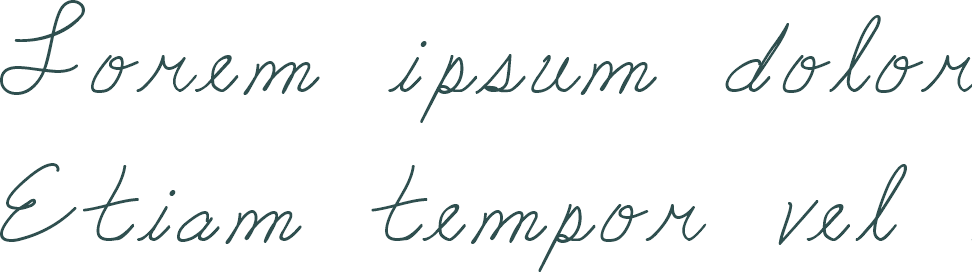 Lorem ipsum dolor
Etiam tempor vel